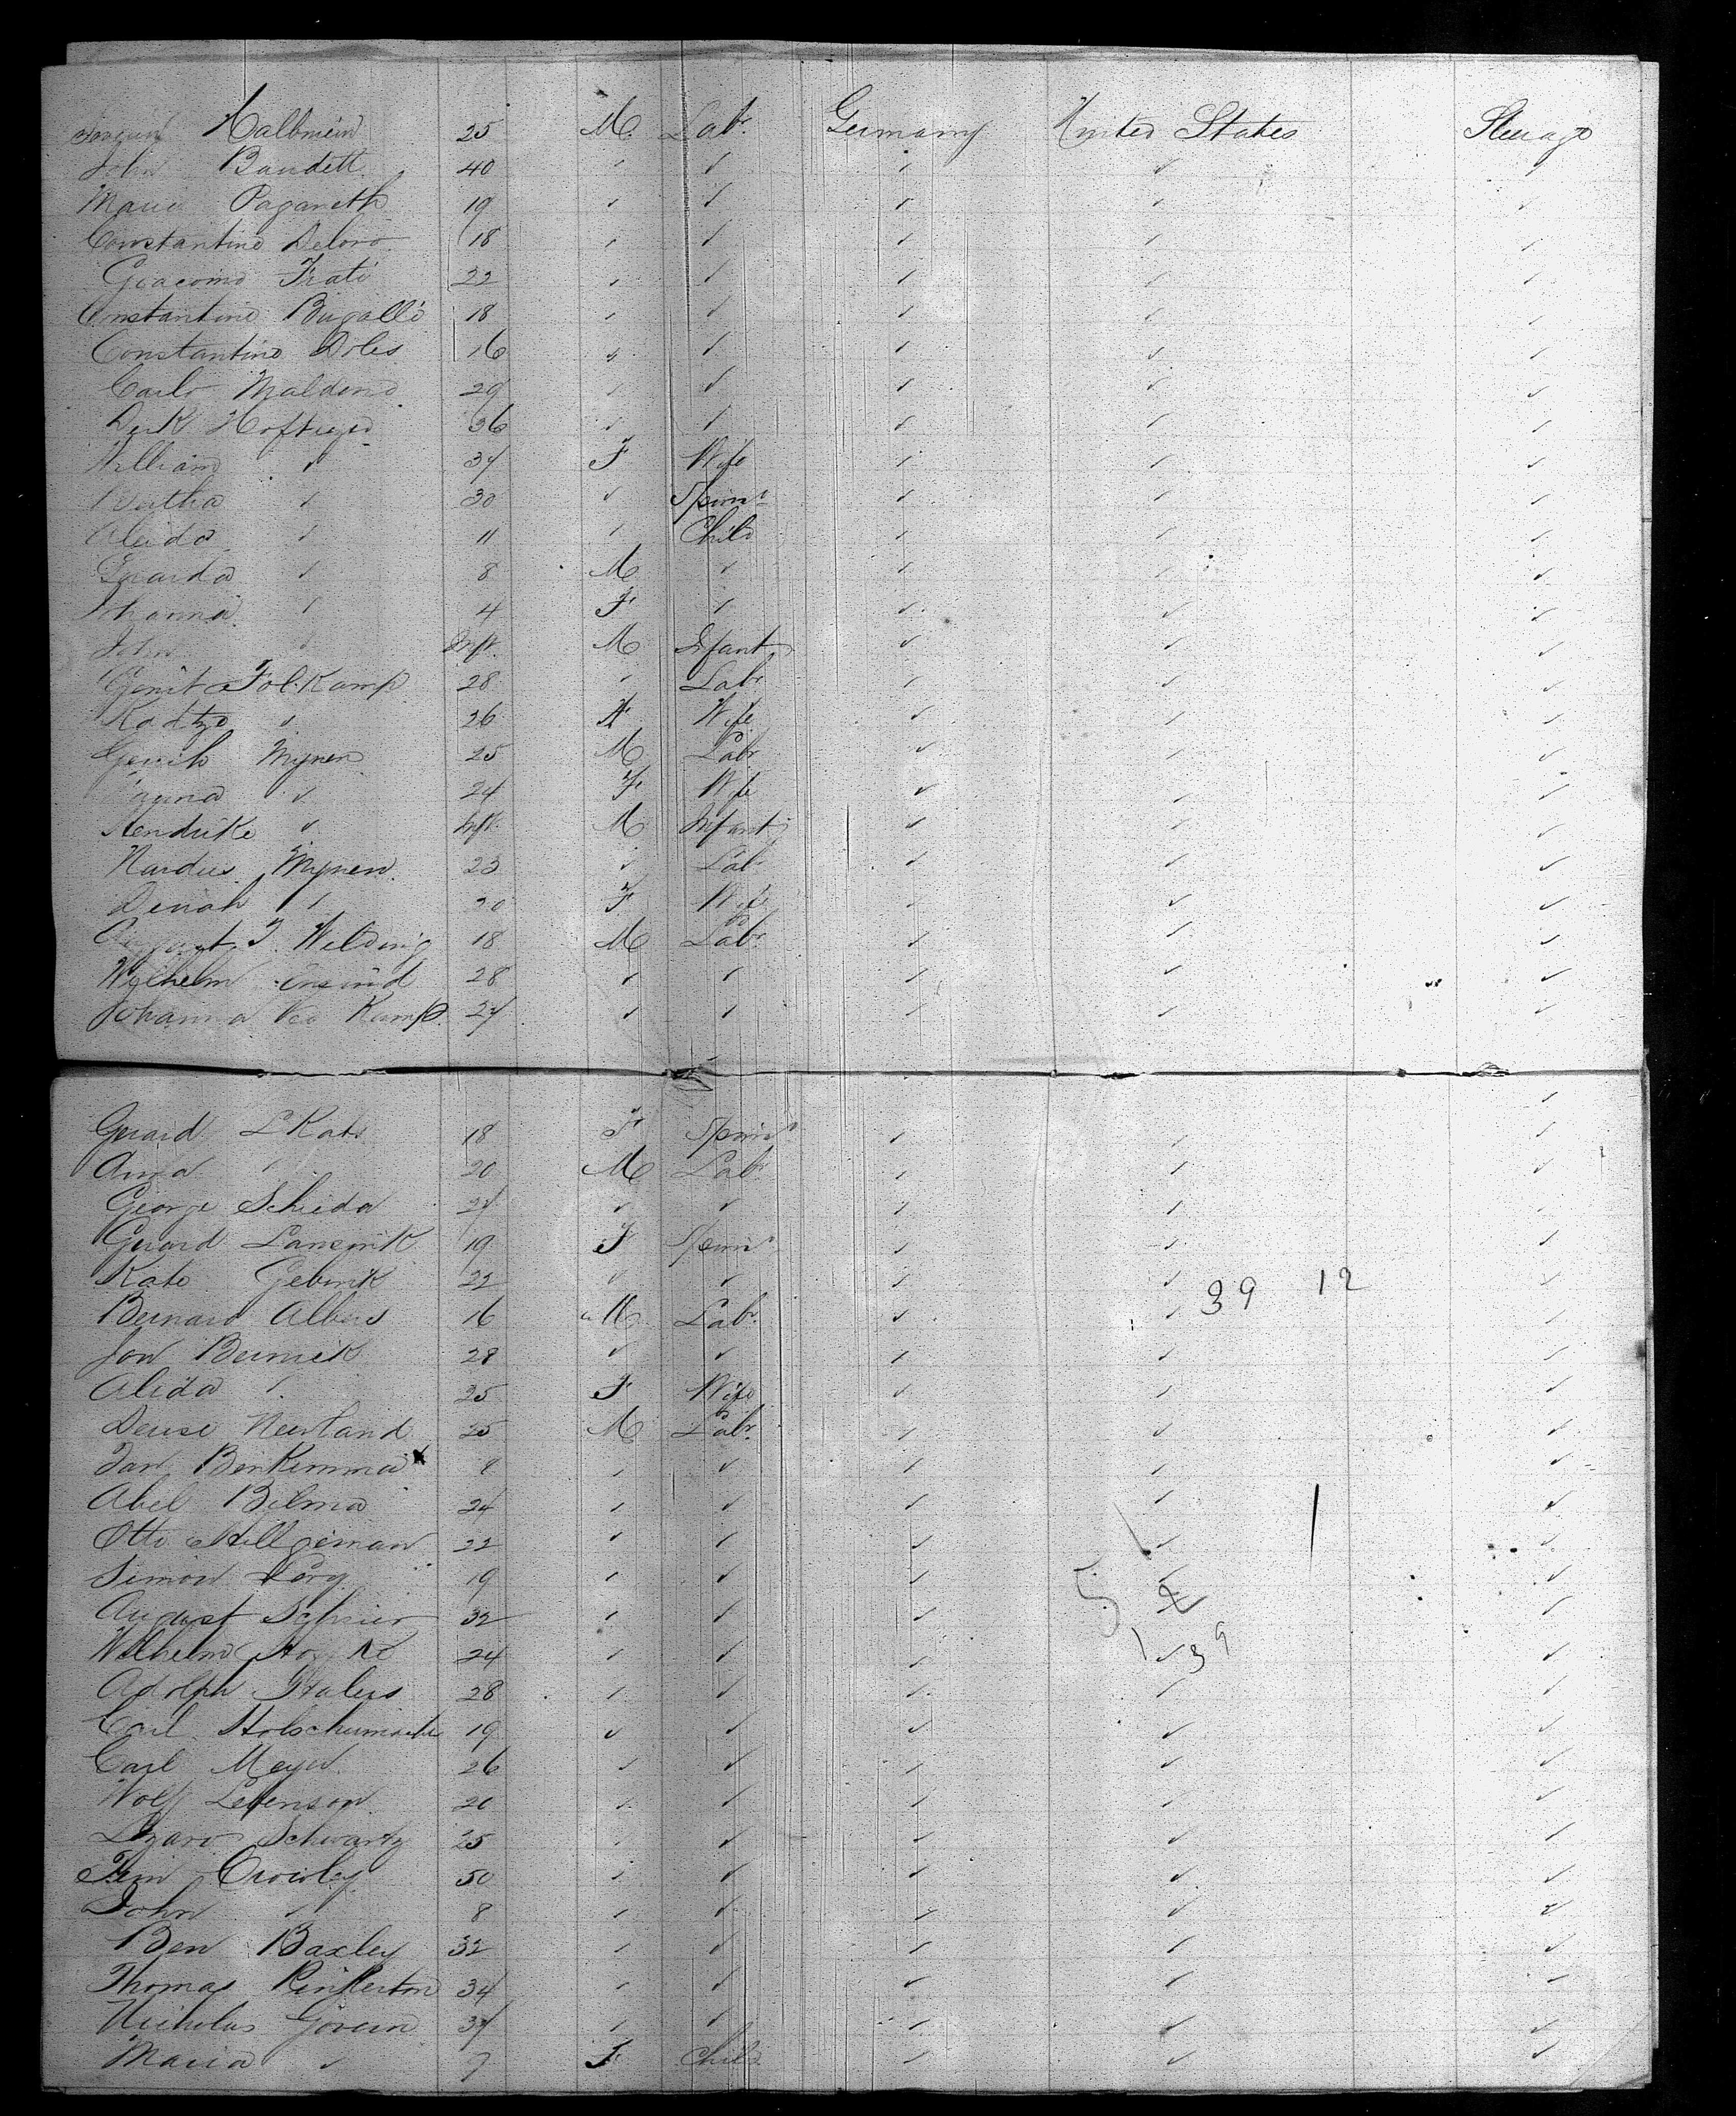 Halbmein 25 M. Labr. Germany United States Steerage
John Baudett 40 ✓ ✓ ✓ ✓ ✓
Marie Paganeth 19 ✓ ✓ ✓ ✓ ✓
Constantino Deloro 18 ✓ ✓ ✓ ✓ ✓
Giacomo Frati 22 ✓ ✓ ✓ ✓ ✓
Constantino Bugallo 18 ✓ ✓ ✓ ✓ ✓
Constantino Doles 16 ✓ ✓ ✓ ✓ ✓
Carlo Maldeno 29 ✓ ✓ ✓ ✓ ✓
Derk 36 ✓ ✓ ✓ ✓ ✓
William ✓ 34 F Wife ✓ ✓ ✓
Bertha ✓ 30 ✓ Spinr ✓ ✓ ✓
Aleida ✓ 11 ✓ Child ✓ ✓ ✓
Gerarda ✓ 8 M ✓ ✓ ✓ ✓
Johanna ✓ 4 F ✓ ✓ ✓ ✓
John ✓ Inft. M Infant ✓ ✓ ✓
Gerrit Folkamp 28 ✓ Labr ✓ ✓ ✓
✓ 26 F Wife ✓ ✓ ✓
Gerrit Mynen 25 M Labr ✓ ✓ ✓
✓ 24 F Wife ✓ ✓ ✓
Hendrike ✓ Inft. M Infant ✓ ✓ ✓
Nardus Mynen 23 ✓ Lab ✓ ✓ ✓
Denah ✓ 20 F Wife ✓ ✓ ✓
August F. Welding 18 M Labr ✓ ✓ ✓
Wilhelm 28 ✓ ✓ ✓ ✓ ✓
Johanna Kamp. 24 ✓ ✓ ✓ ✓ ✓
Gerard L Kats 18 F Spinr ✓ ✓ ✓
Anna ✓ 20 M Labr ✓ ✓ ✓
George Scheda 24 ✓ ✓ ✓ ✓ ✓
Gerard Lansink 19 F Spinr ✓ ✓ ✓
Kate Gebink 22 ✓ ✓ ✓ ✓ 39 12 ✓
Bernard Albers 16 M Labr. ✓ ✓ ✓
Jan Bennick 28 ✓ ✓ ✓ ✓ ✓
Alida ✓ 25 F Wife ✓ ✓ ✓
Newland 25 M Labr. ✓ ✓ ✓
Jan Benkemma 8 ✓ ✓ ✓ ✓ ✓
Abel Bilma 24 ✓ ✓ ✓ ✓ ✓
Otto Hillgeman 22 ✓ ✓ ✓ ✓ ✓
Simon Lorg 19 ✓ ✓ ✓ ✓ ✓
August 32 ✓ ✓ ✓ ✓ ✓
Wilhelm 24 ✓ ✓ ✓ ✓ 39 ✓
Adolph 28 ✓ ✓ ✓ ✓ ✓
Carl 19 ✓ ✓ ✓ ✓ ✓
Carl Meyer 26 ✓ ✓ ✓ ✓ ✓
Wolf Levenson 20 ✓ ✓ ✓ ✓ ✓
Schwartz 25 ✓ ✓ ✓ ✓ ✓
Tim Crowley 50 ✓ ✓ ✓ ✓ ✓
John ✓ 8 ✓ ✓ ✓ ✓ ✓
Ben Baxley 32 ✓ ✓ ✓ ✓ ✓
Thomas Pinkerton 34 ✓ ✓ ✓ ✓ ✓
Nicholas Goreen 34 ✓ ✓ ✓ ✓ ✓
Maria ✓ 7 F Child ✓ ✓ ✓